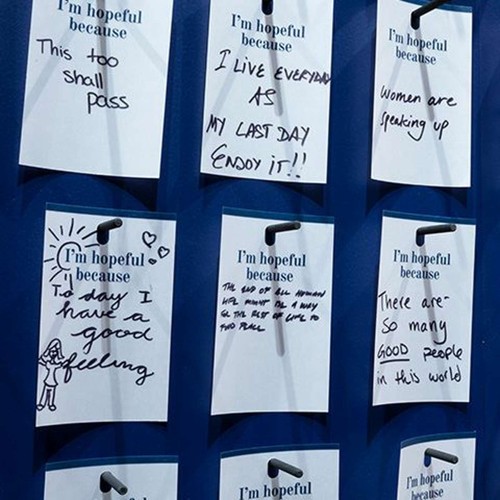 I'm hopeful
because
This too
shall
pass
I'm hopeful
because
I LIVE EVERYDAY
AS
MY LAST DAY
ENJOY IT!!
I'm hopeful
because
Women are
speaking up
I'm hopeful
because
Today I
have a
good
feeling
I'm hopeful
because
THE END OF ALL HUMAN
LIFE MIGHT BE A WAY
THE REST OF LIFE TO
There are
so many
GOOD people
in this world
I'm hopeful
I'm hopeful
because